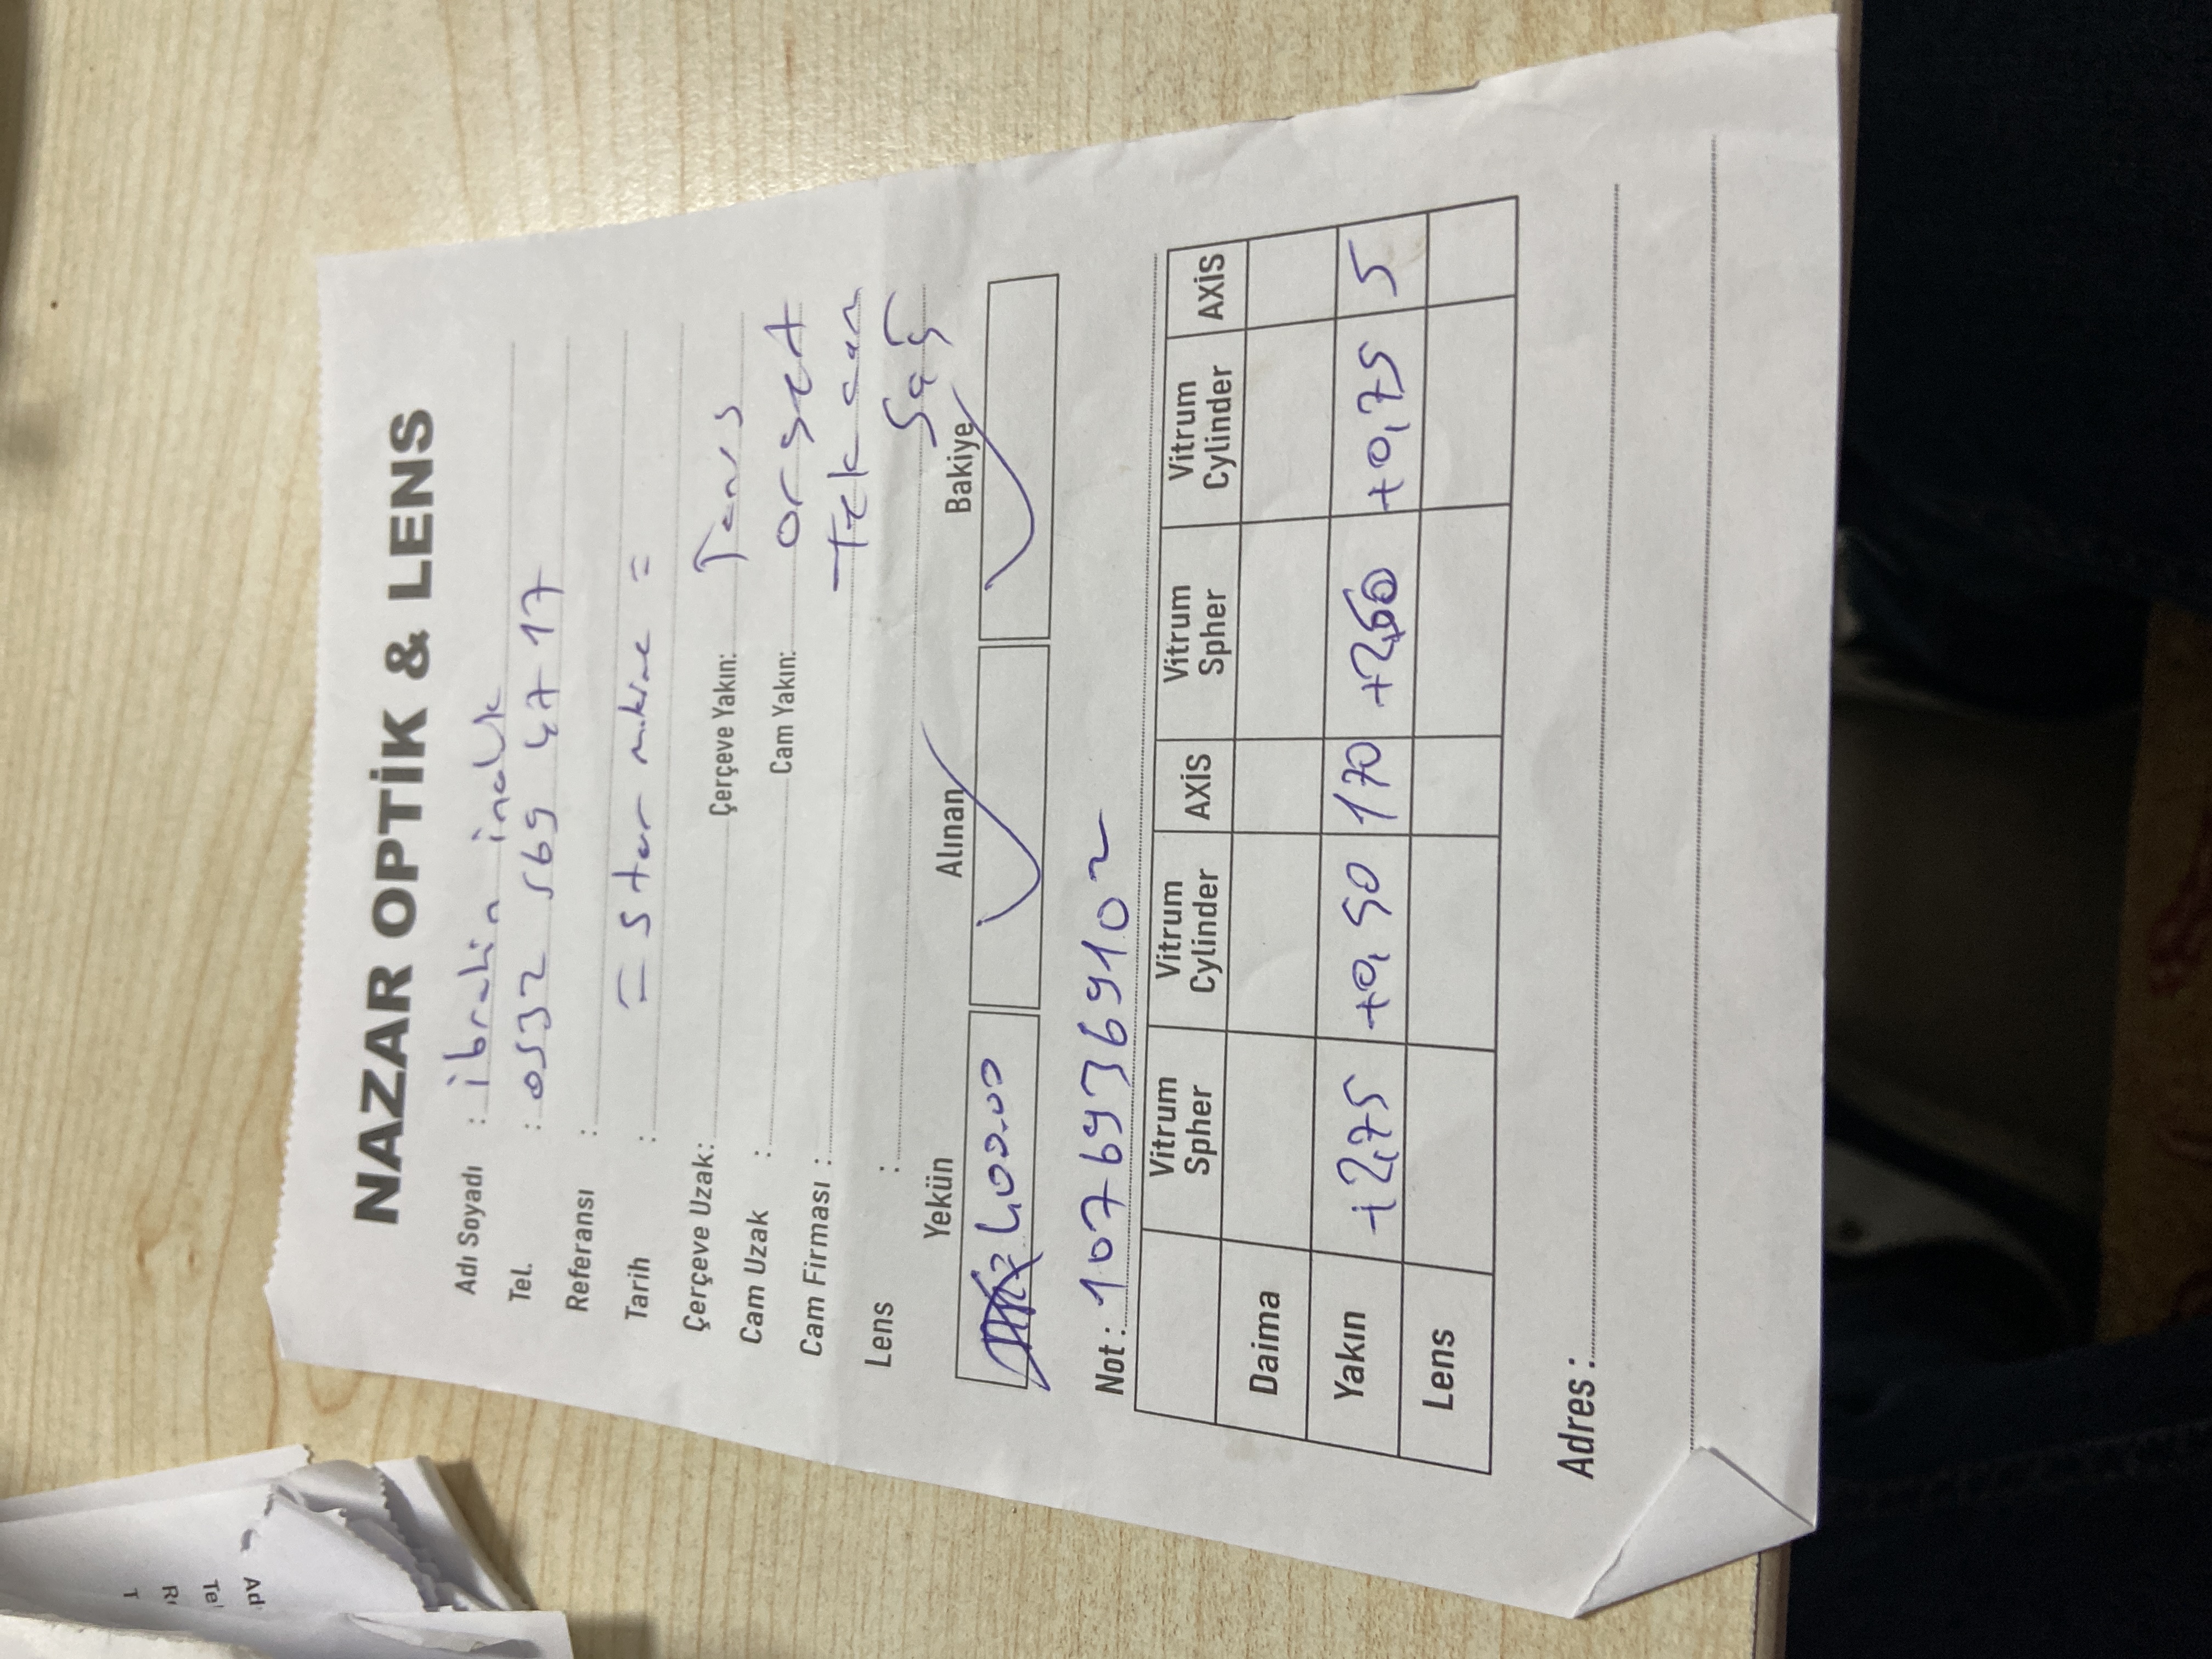 T
R
Te
Ad
NAZAR OPTİK & LENS
Adı Soyadı : ibrahim
Tel. : 0532 569 47 17
Referansı :
Tarih : = Star makine =
Çerçeve Uzak: Çerçeve Yakın:
Cam Uzak : Cam Yakın:
Cam Firması : Tek cam
Lens : Sağ
Yekün Alınan Bakiye
400.00
Not : 10769369102
Vitrum Spher Vitrum Cylinder AXİS Vitrum Spher Vitrum Cylinder AXİS
Daima
Yakın +2,75 +0,50 170 +2,50 +0,75 5
Lens
Adres :